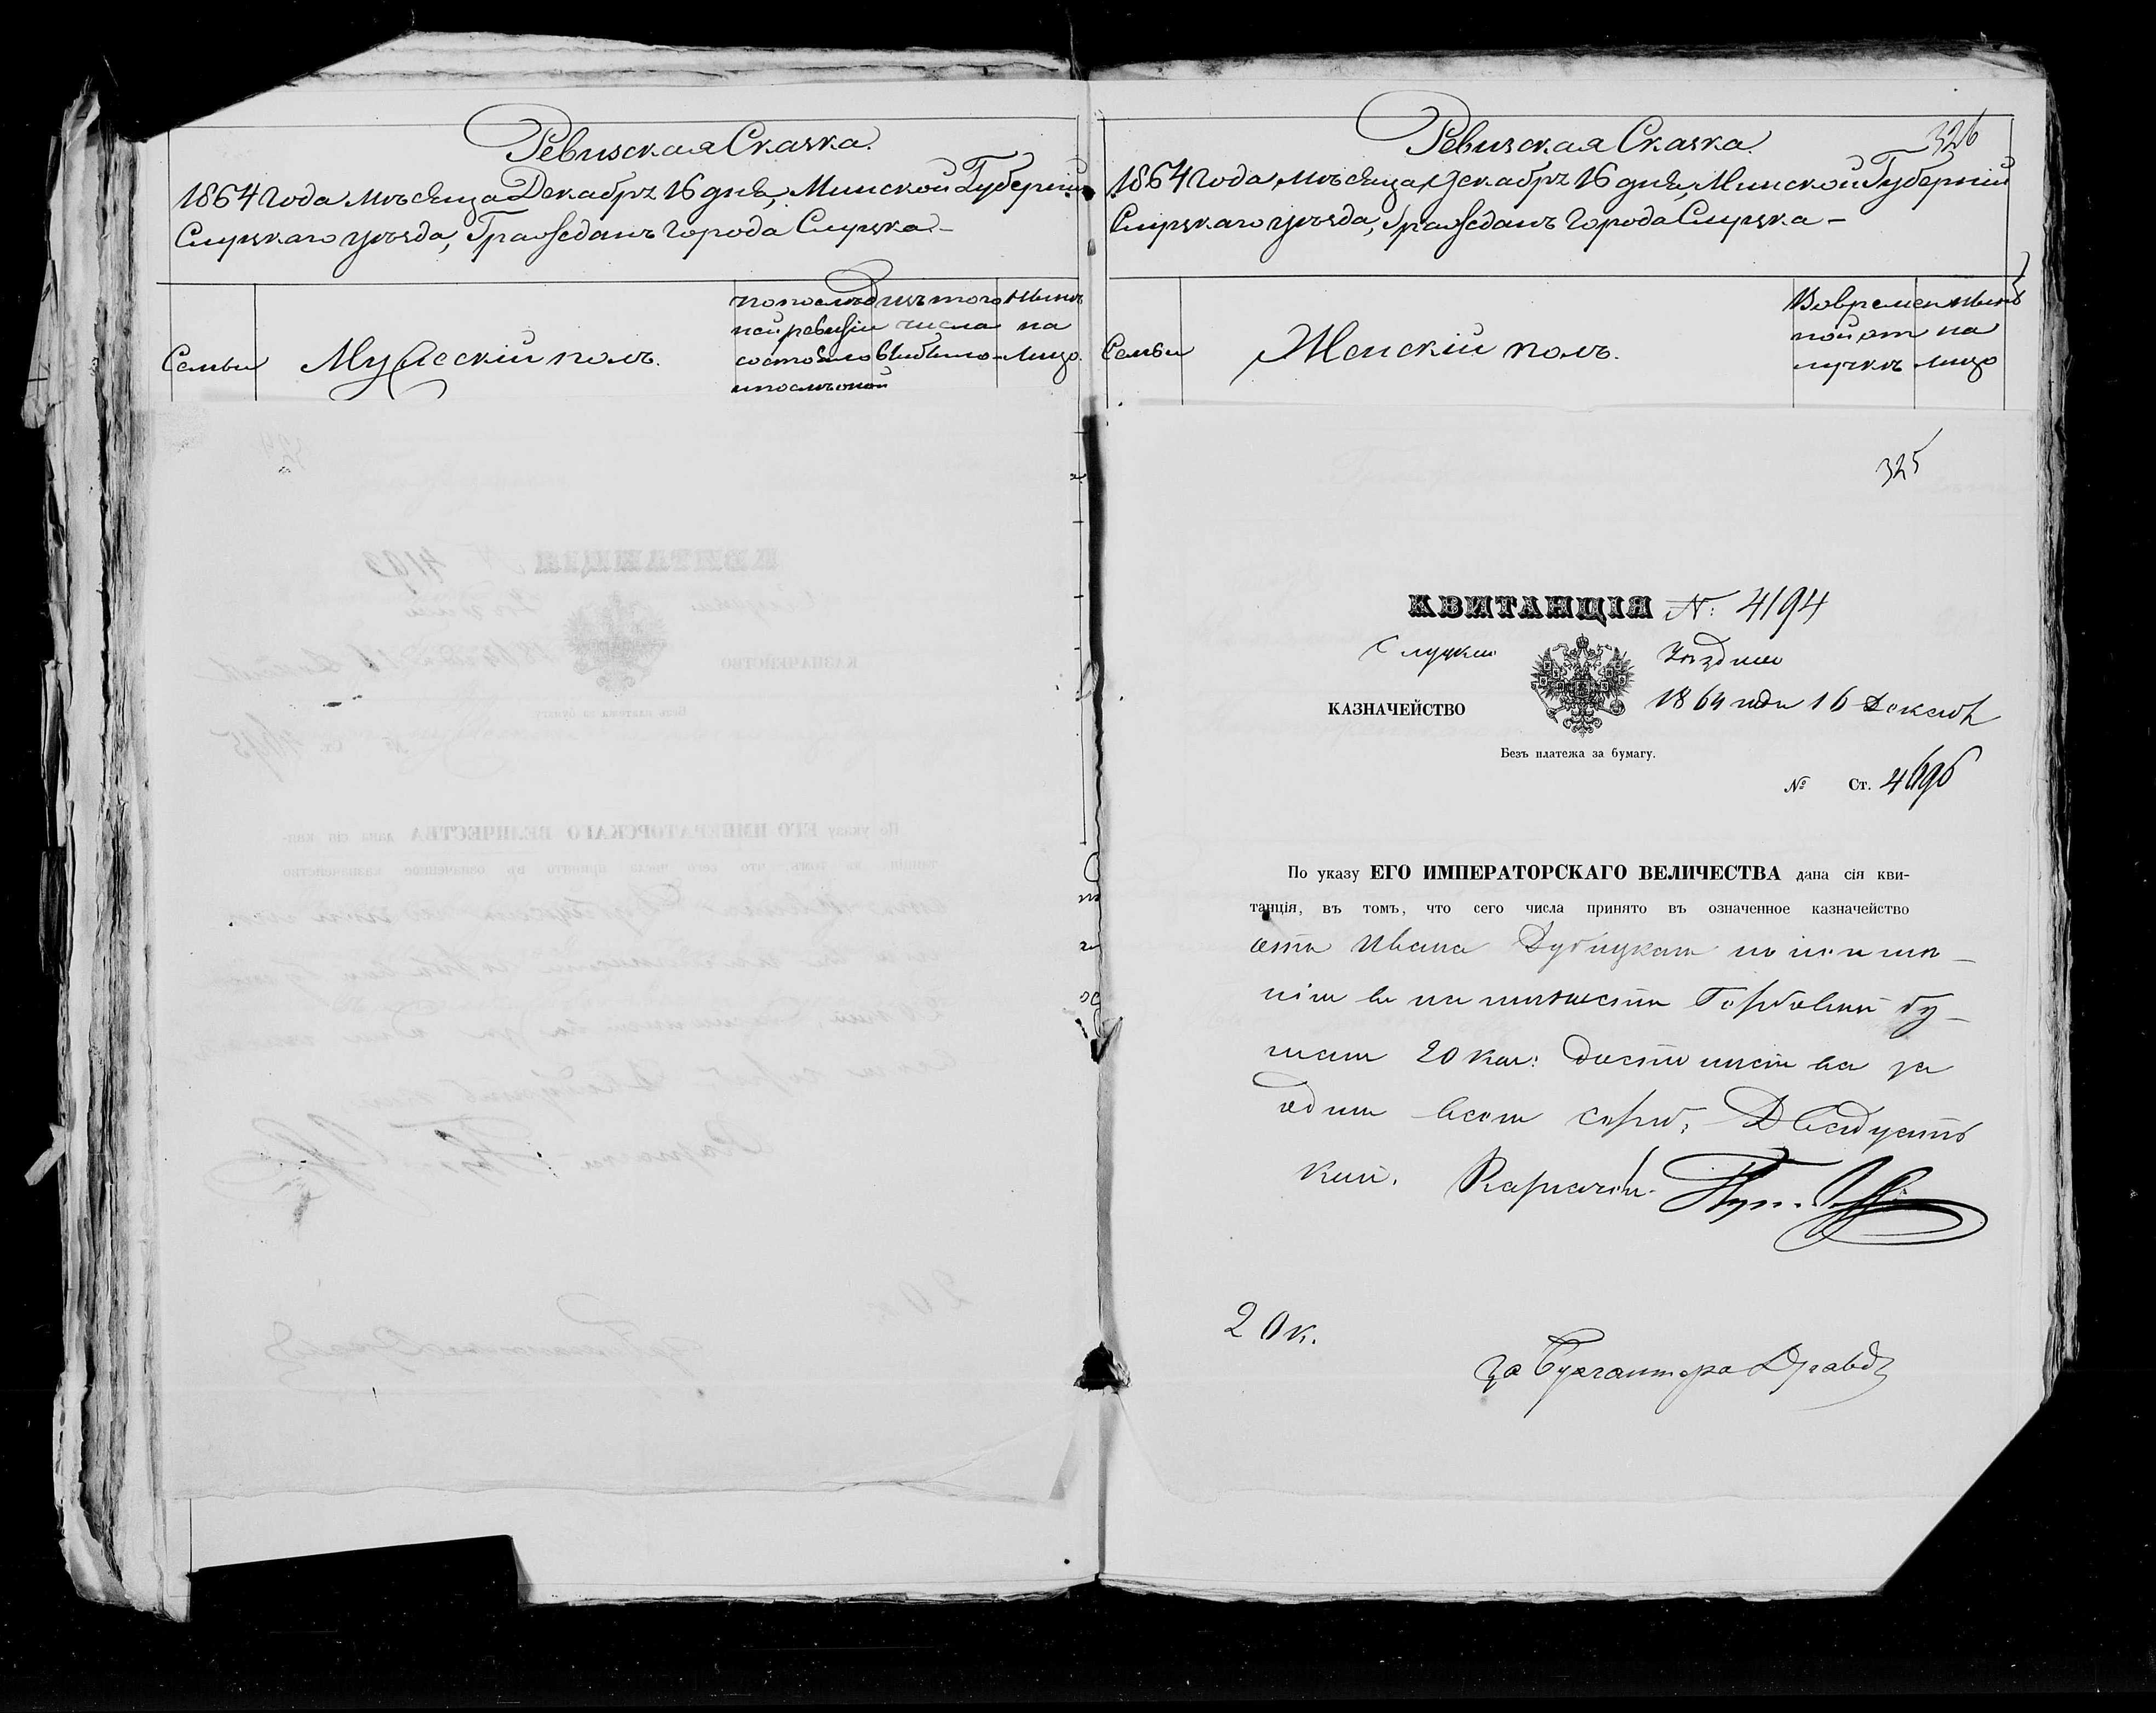 Ревизская Сказка.
1864 года мѣсяца Декабря 16 дня, Минской Губерніи
Слуцкаго уѣзда, Гражданъ Города Слуцка.—
Семьи
Мужескій полъ.
по послѣд
ней ревизіи
состояло
и послѣ оной
изъ того
числа
выбыло
Нынѣ
на
лицо.
Ревизская Сказка.
326
1864 года мѣсяца Декабря 16 дня, Минской Губерніи
Слуцкаго уѣзда, Гражданъ Города Слуцка —
Семьи
Женскій полъ.
Во времен
ной от
лучкѣ
Нынѣ
на
лицо
325
КВИТАНЦІЯ N: 4194
Слуцкое Уѣздное
КАЗНАЧЕЙСТВО
1864 года 16 Декаб
Безъ платежа за бумагу.
№ Ст. 4696
По указу ЕГО ИМПЕРАТОРСКАГО ВЕЛИЧЕСТВА дана сія кви-
танція, въ томъ, что сего числа принято въ означенное казначейство
отъ Ивана
Гербовой бу-
маги 20 коп: достоинства за
одинъ листъ сереб. Двадцать
коп. Казначей
20 к.
За Бухгалтера